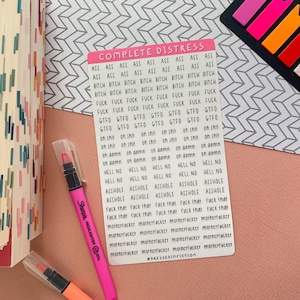 COMPLETE DISTRESS
ASS ASS ASS ASS ASS ASS ASS ASS
ASS ASS ASS ASS ASS ASS ASS ASS
BITCH BITCH BITCH BITCH BITCH BITCH BITCH
BITCH BITCH BITCH BITCH BITCH BITCH BITCH
FUCK FUCK FUCK FUCK FUCK FUCK FUCK FUCK
FUCK FUCK FUCK FUCK FUCK FUCK FUCK FUCK
GTFO GTFO GTFO GTFO GTFO GTFO GTFO
GTFO GTFO GTFO GTFO GTFO GTFO GTFO
oh shit oh shit oh shit oh shit oh shit oh shit
oh shit oh shit oh shit oh shit oh shit oh shit
oh damn oh damn oh damn oh damn oh damn
oh damn oh damn oh damn oh damn oh damn
HELL NO HELL NO HELL NO HELL NO HELL NO
HELL NO HELL NO HELL NO HELL NO HELL NO
ASSHOLE ASSHOLE ASSHOLE ASSHOLE ASSHOLE
ASSHOLE ASSHOLE ASSHOLE ASSHOLE ASSHOLE
FUCK THAT FUCK THAT FUCK THAT FUCK THAT
FUCK THAT FUCK THAT FUCK THAT FUCK THAT
MOTHERFUCKER MOTHERFUCKER MOTHERFUCKER MOTHERFUCKER
MOTHERFUCKER MOTHERFUCKER MOTHERFUCKER MOTHERFUCKER
MOTHERFUCKER MOTHERFUCKER MOTHERFUCKER MOTHERFUCKER
Sharpie